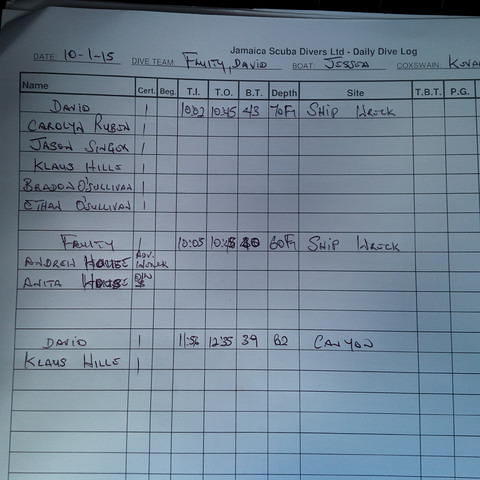 Jamaica Scuba Divers Ltd - Daily Dive Log
DATE: 10-1-15 DIVE TEAM: FRUITY, DAVID BOAT: JESSICA COXSWAIN:
Name Cert. Beg. T.I. T.O. B.T. Depth Site T.B.T. P.G.
DAVID 1 10:02 10:45 43 70FT SHIP WRECK
CAROLYN RUBIN 1
JASON SINGER 1
KLAUS HILLS 1
BRADON O'SULLIVAN 1
ETHAN O'SULLIVAN 1
FRUITY 1 10:05 10:45 40 60FT SHIP WRECK
ANDREW HOUSE ADV.
ANITA HOUSE
DAVID 1 11:56 12:35 39 82 CANYON
KLAUS HILLS 1